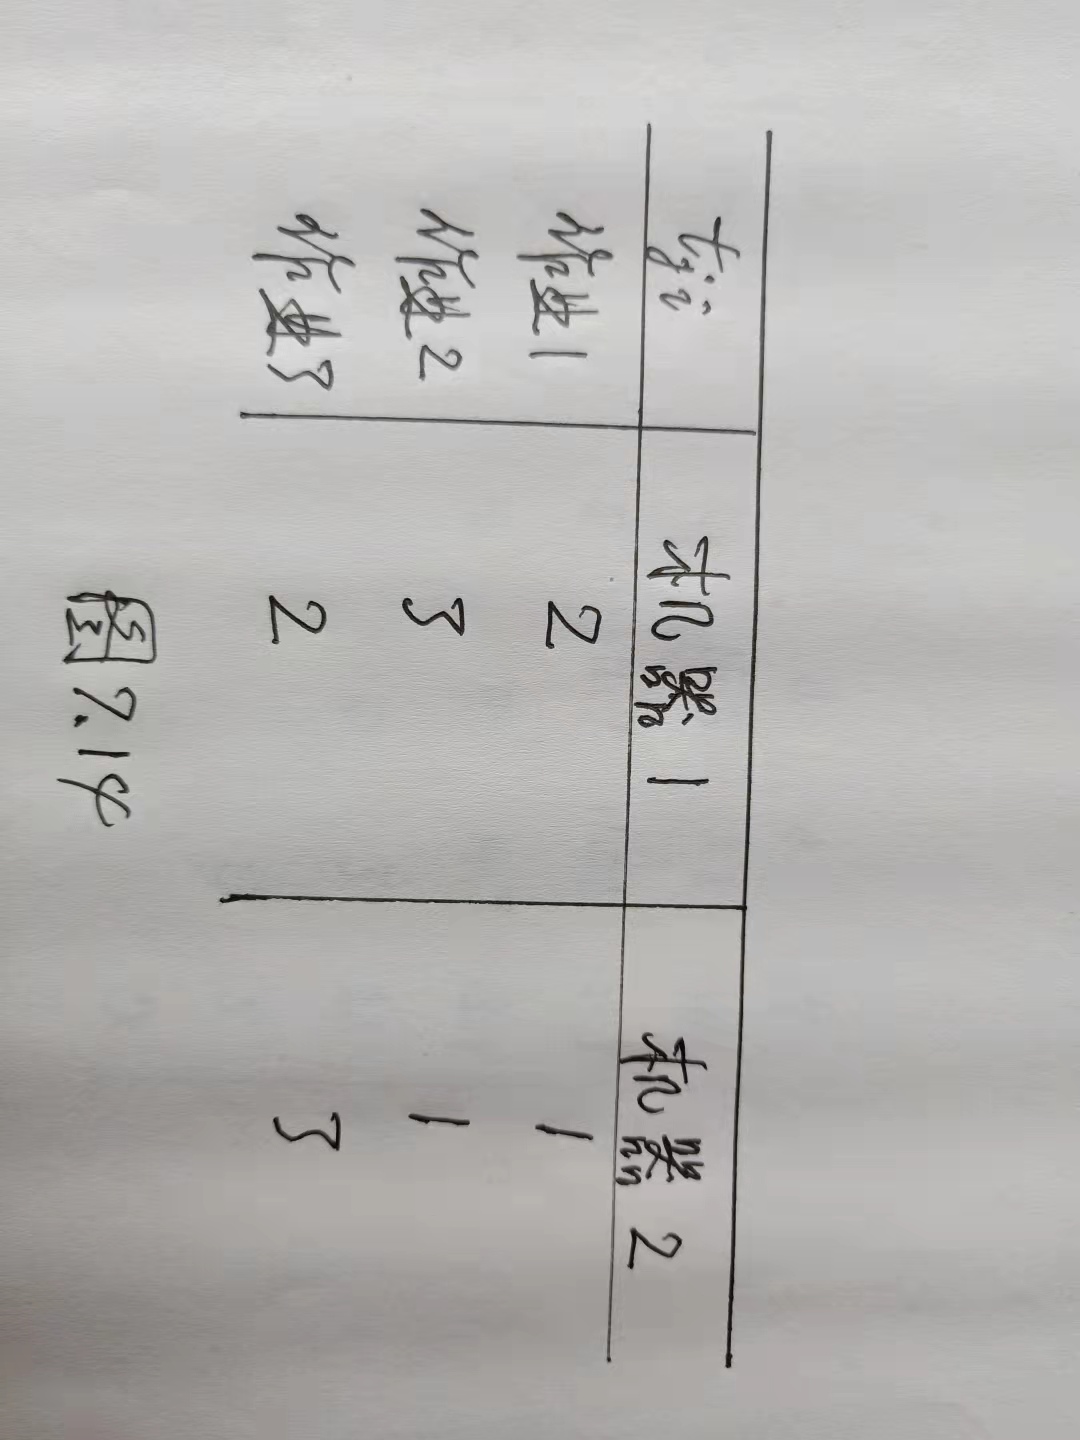 tji 机器1 机器2
作业1 2 1
作业2 3 1
作业3 2 3
图7.14